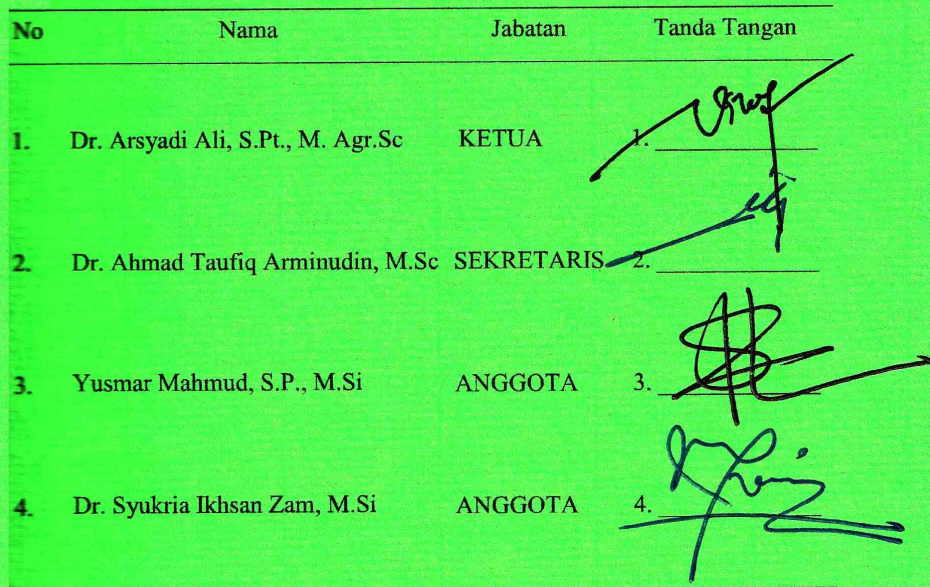 No Nama Jabatan Tanda Tangan
1. Dr. Arsyadi Ali, S.Pt., M. Agr.Sc KETUA 1.
2. Dr. Ahmad Taufiq Arminudin, M.Sc SEKRETARIS 2.
3. Yusmar Mahmud, S.P., M.Si ANGGOTA 3.
4. Dr. Syukria Ikhsan Zam, M.Si ANGGOTA 4.